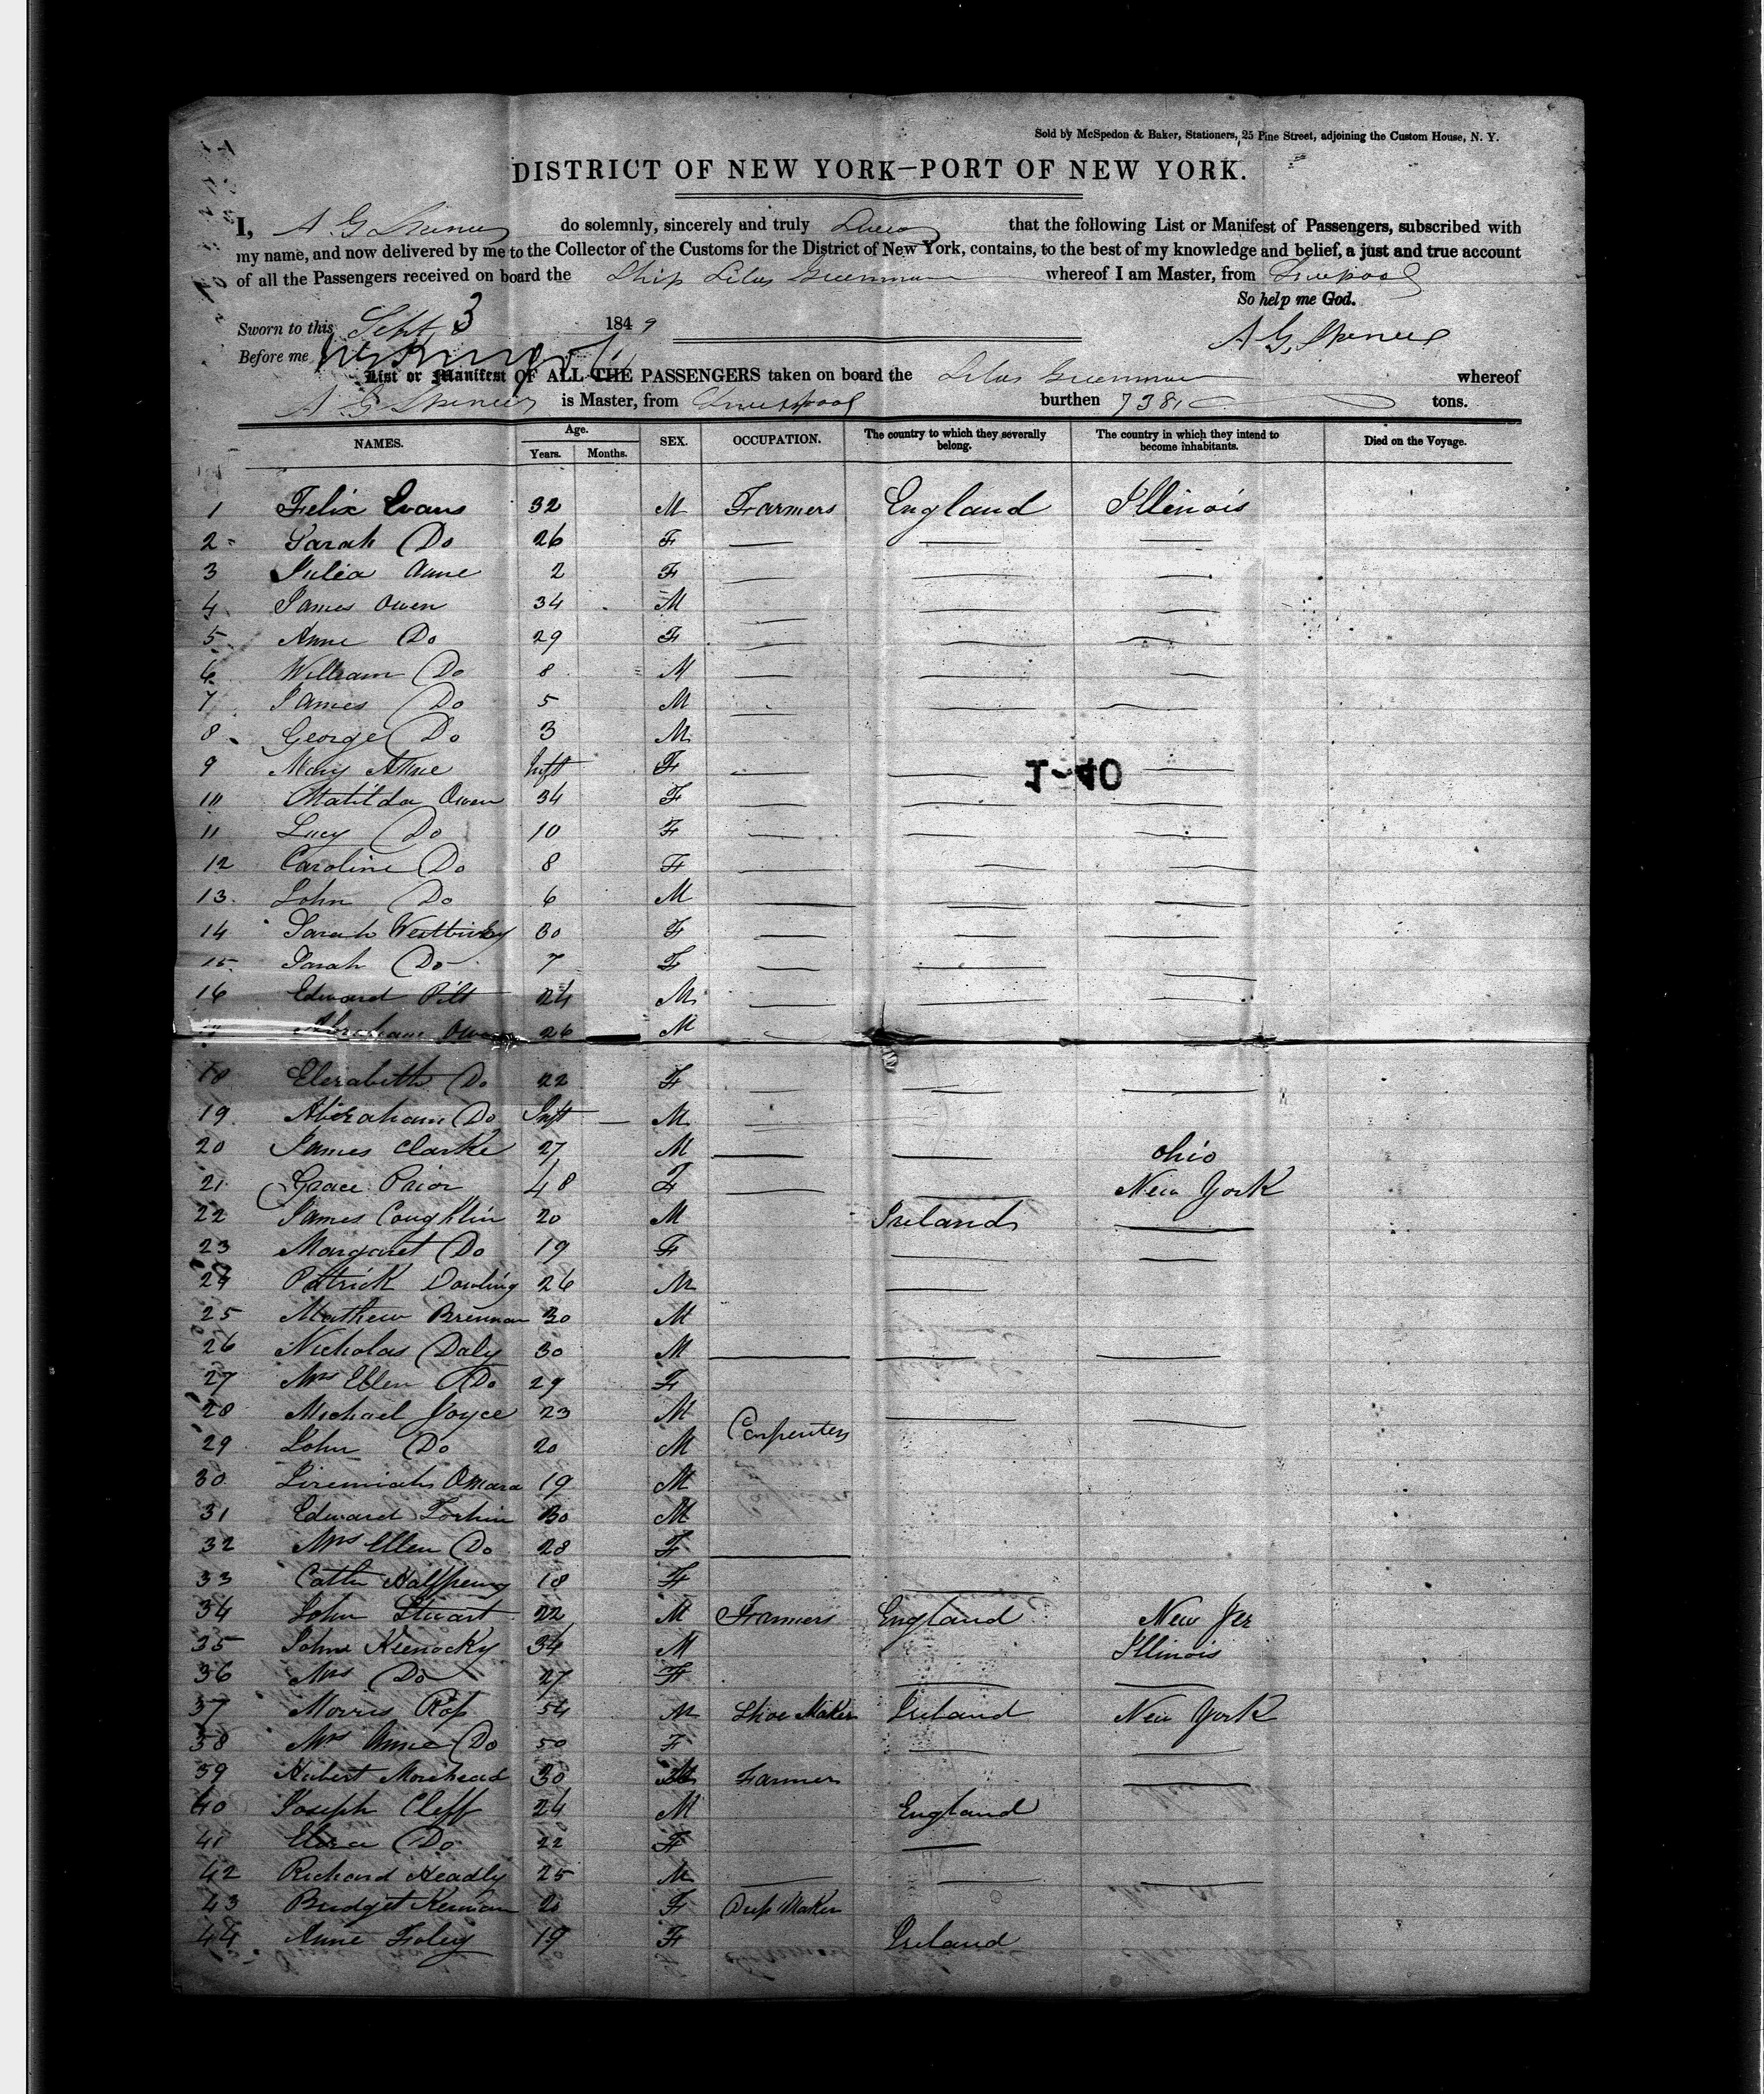 Sold by McSpedon & Baker, Stationers, 25 Pine Street, adjoining the Custom House, N. Y.
DISTRICT OF NEW YORK—PORT OF NEW YORK.
I, A G Spencer do solemnly, sincerely and truly Swear that the following List or Manifest of Passengers, subscribed with
my name, and now delivered by me to the Collector of the Customs for the District of New York, contains, to the best of my knowledge and belief, a just and true account
of all the Passengers received on board the Ship Silas Greenman whereof I am Master, from Liverpool
So help me God.
Sworn to this Sept 3 1849
A G Spencer
Before me
List or Manifest OF ALL THE PASSENGERS taken on board the Silas Greenman whereof
A G Spencer is Master, from Liverpool burthen 738 tons.
NAMES. Age. Years. Months. SEX. OCCUPATION. The country to which they severally belong. The country in which they intend to become inhabitants. Died on the Voyage.
1 Felix Evans 32 M Farmers England Illinois
2 Sarah Do 26 F
3 Julia Anne 2 F
4 James Owen 34 M
5 Anne Do 29 F
6 William Do 8 M
7 James Do 5 M
8 George Do 3 M
9 Mary Anne Inft F
1-40
10 Matilda Owen 34 F
11 Lucy Do 10 F
12 Caroline Do 8 F
13 John Do 6 M
14 Sarah 30 F
15 Sarah Do 7 F
16 Edward Pilt 24 M
Abraham Owen 26 M
18 Elezabeth Do 22 F
19 Aberaham Do Inft M
20 James Clarke 27 M Ohio
21 Grace Prior 48 F New York
22 James Coughlin 20 M Ireland
23 Margaret Do 19 F
24 Patrick Dowling 26 M
25 Mathew Brennan 30 M
26 Nicholas Daly 30 M
27 Mrs Ellen Do 29 F
28 Michael Joyce 23 M
Carpenters
29 John Do 20 M
30 Jeremiah Omara 19 M
31 Edward 30 M
32 Mrs Ellen Do 28 F
33 Cathn Halfpenny 18 F
34 John Stuart 22 M Farmers England New Jer
35 John 34 M Illinois
36 Mrs Do 27 F
37 Morris Rofs 54 M Shoe Maker Ireland New York
38 Mrs Anne Do 50 F
39 Hubert Morehead 30 M Farmer
40 Joseph Cleff 24 M England
41 Eliza Do 22 F
42 Richard Headly 25 M
43 Bridget 20 F Drefs Maker
44 Anne Foley 19 F Ireland